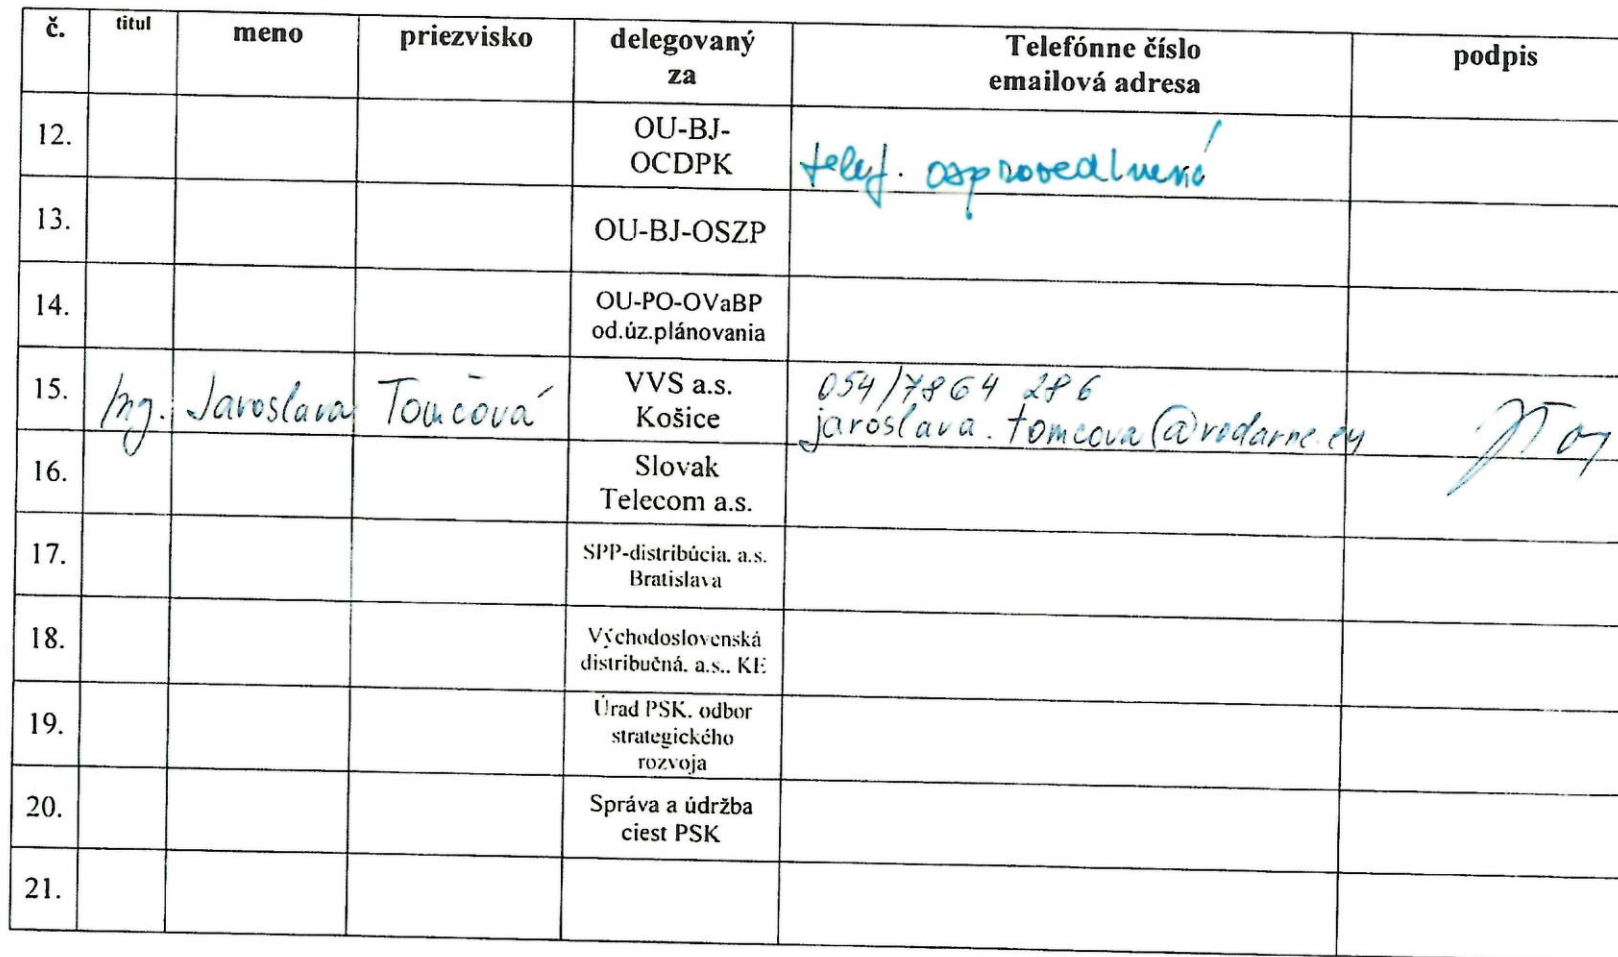 č. titul meno priezvisko delegovaný za Telefónne číslo emailová adresa podpis
12. OU-BJ-OCDPK telef. osprovedlnená
13. OU-BJ-OSZP
14. OU-PO-OVaBP od.úz.plánovania
15. Ing. Jaroslava Tomčová VVS a.s. Košice 054/7864 286
jaroslava.tomcova@vodarne.eu
16. Slovak Telecom a.s.
17. SPP-distribúcia. a.s. Bratislava
18. Východoslovenská distribučná. a.s.. KE
19. Úrad PSK. odbor strategického rozvoja
20. Správa a údržba ciest PSK
21.